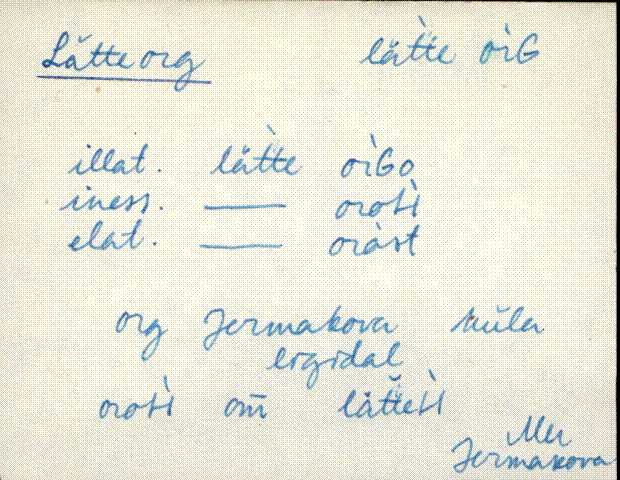 Lätteorg lät̀te òiG
illat. lät̀te òiGo
iness. — orotì
elat. — oràst
org Jermakova küla
ligidal
orotì om̄ lät̆tetì
Mer
Jermakova